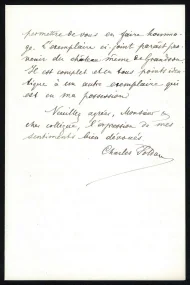 permettre de vous en faire homma-
ge. L'exemplaire ci joint paraît pro-
venir du château même de Grandson.
Il est complet et en tous points iden-
tique à un autre exemplaire qui
est en ma possession.
Veuillez agréer, Monsieur &
cher collègue, l'expression de mes
sentiments bien dévoués
Charles